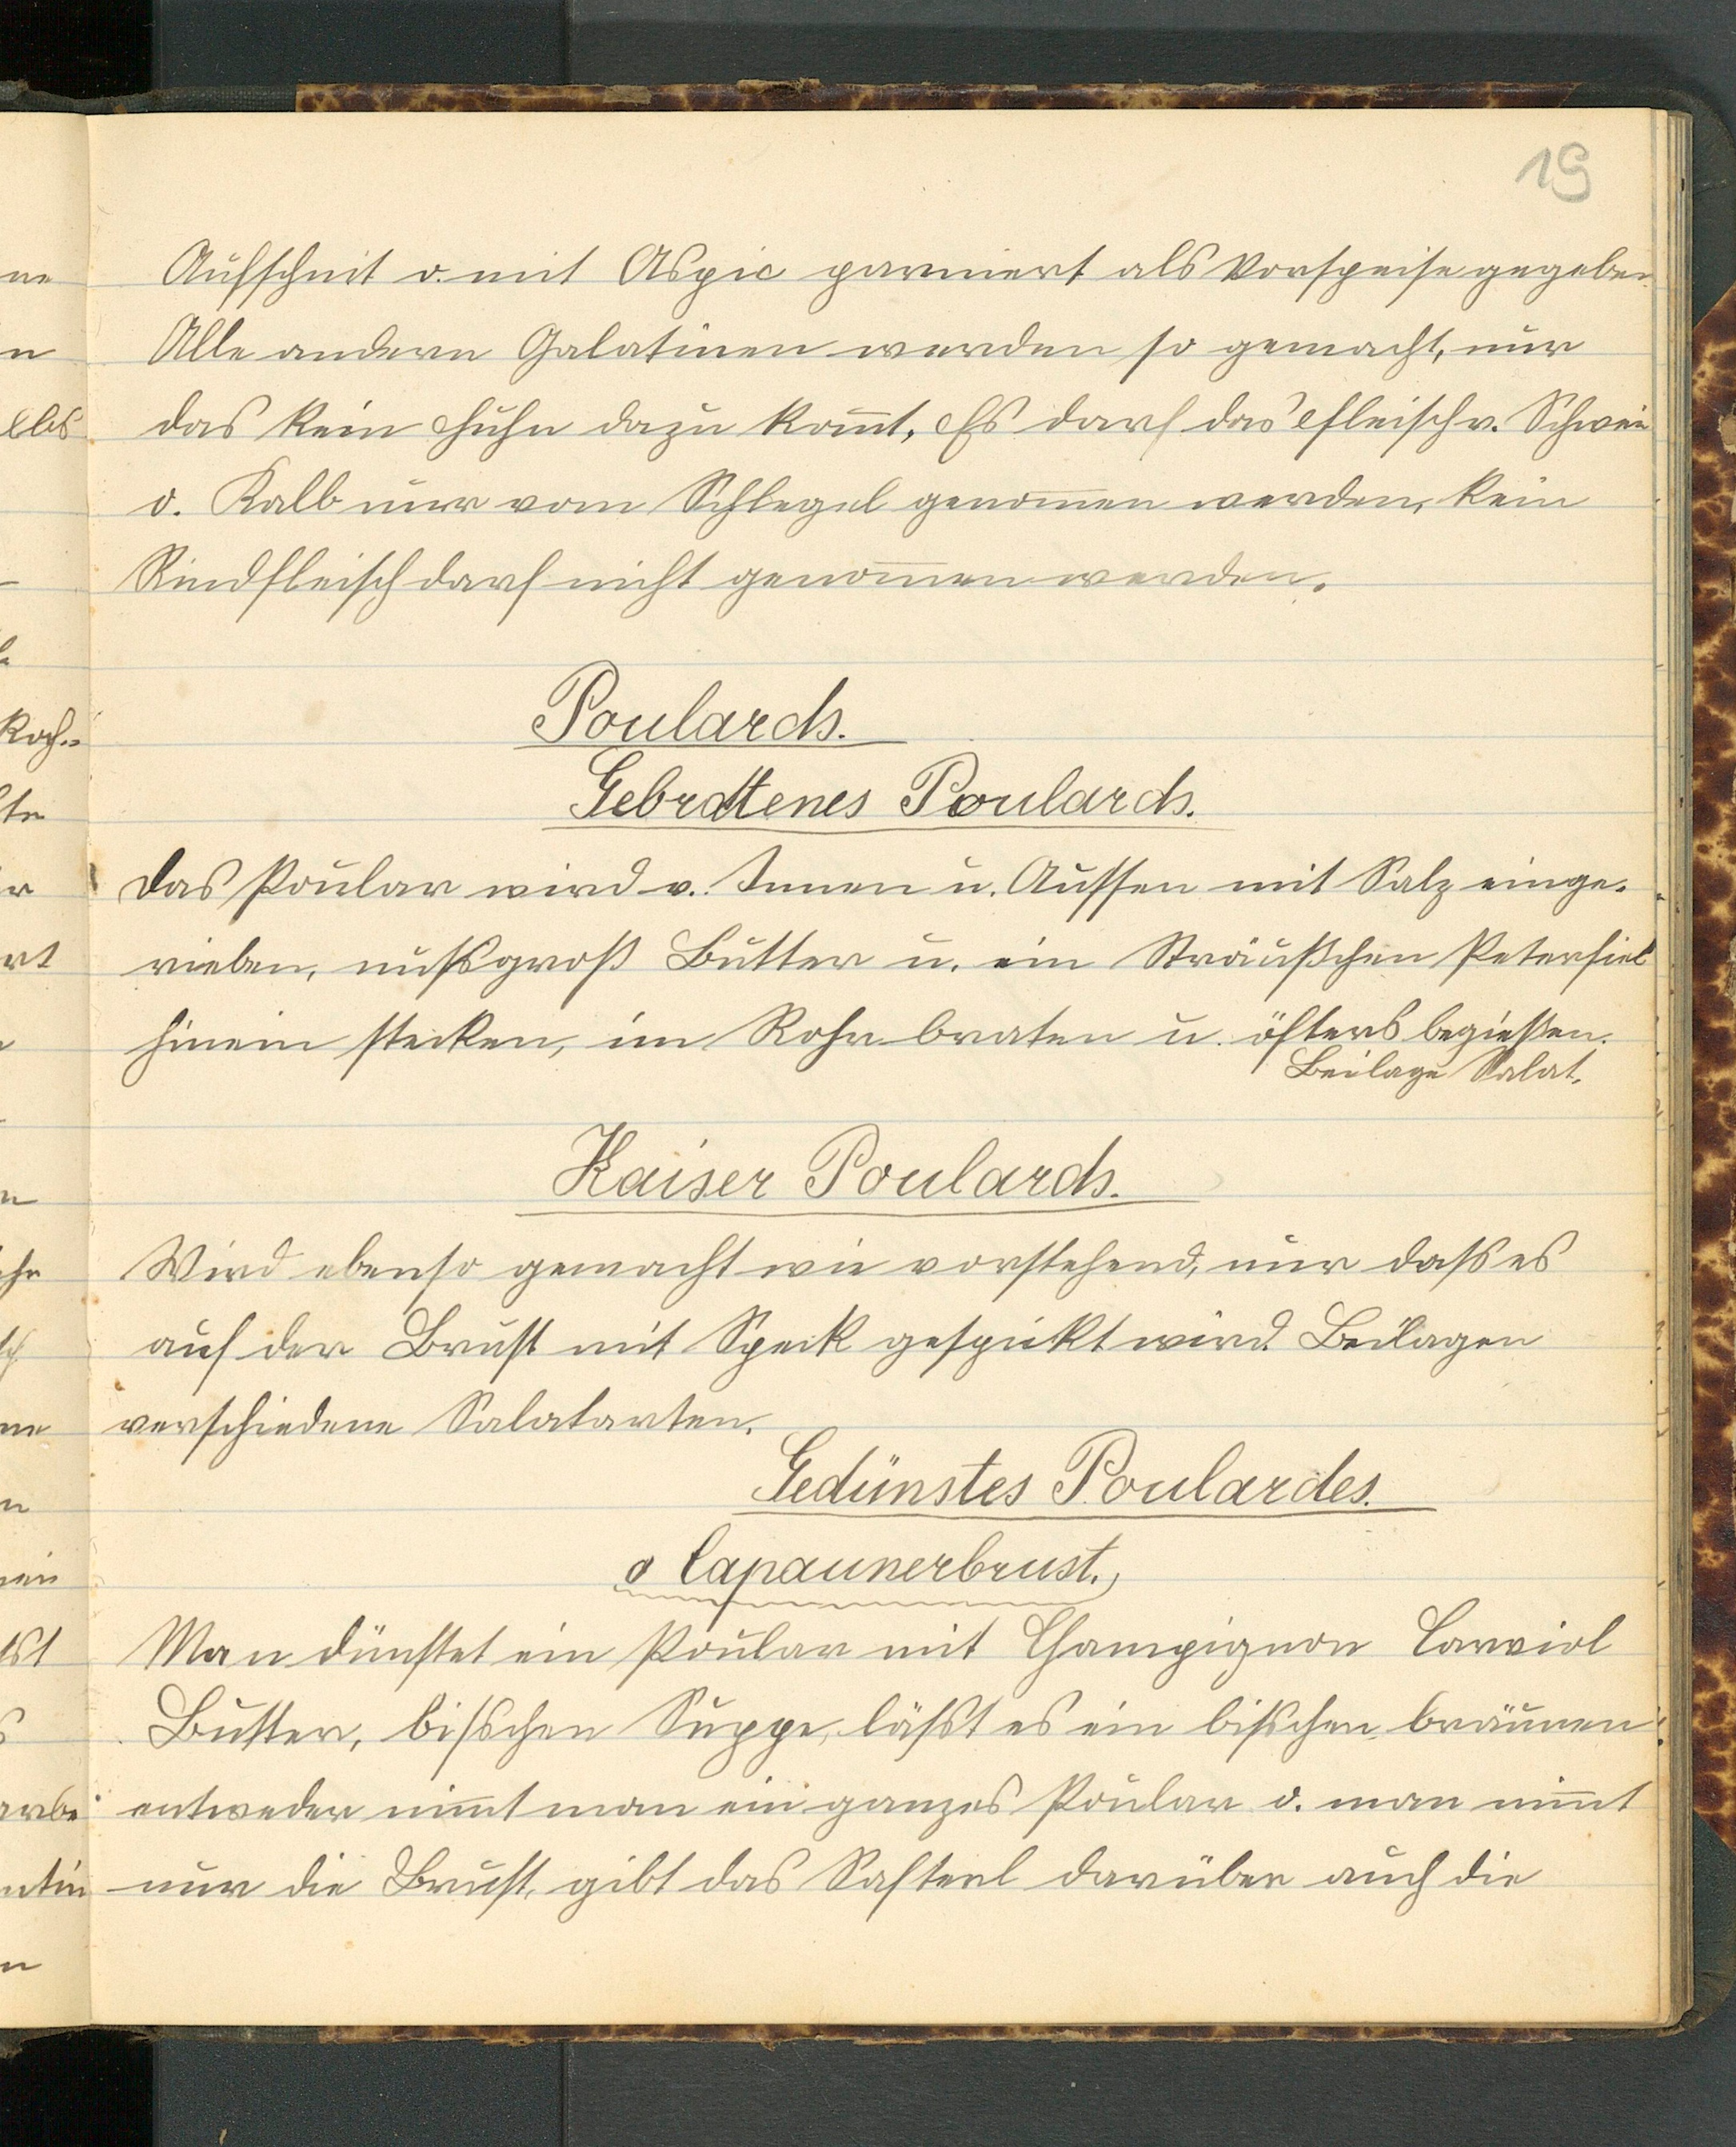 19
Aufschnit o. mit Aspic garniert als Vorspeise gegeben.
Alle andern Galatinen werden so gemacht, nur
das kein Huhn dazu kom̄t, Es darf das Fleisch v. Schwein
o. Kalb nur vom Schlegel genom̄en werden, kein
Rindfleisch darf nicht genom̄en werden.
Poulards.
Gebrattenes Poulards.
Das Poular wird v. Innen u. Aussen mit Salz einge-
rieben, nussgroß Butter u. ein Sträußchen Petersiel
hinein stecken, im Rohr braten u. öfters begießen.
Beilage Salat.
Kaiser Poulards.
Wird ebenso gemacht wie vorstehend, nur dass es
auf der Brust mit Speck gespickt wird. Beilagen
verschiedene Salatarten.
Gedünstes Poulardes.
o Capaunerbrust.
Man dünstet ein Poular mit Champignon Carviol
Butter, bisschen Suppe, lässt es ein bisschen bräunen
entweder nim̄t man ein ganzes Poular o. man nim̄t
nur die Brust, gibt das Safterl darüber auch die